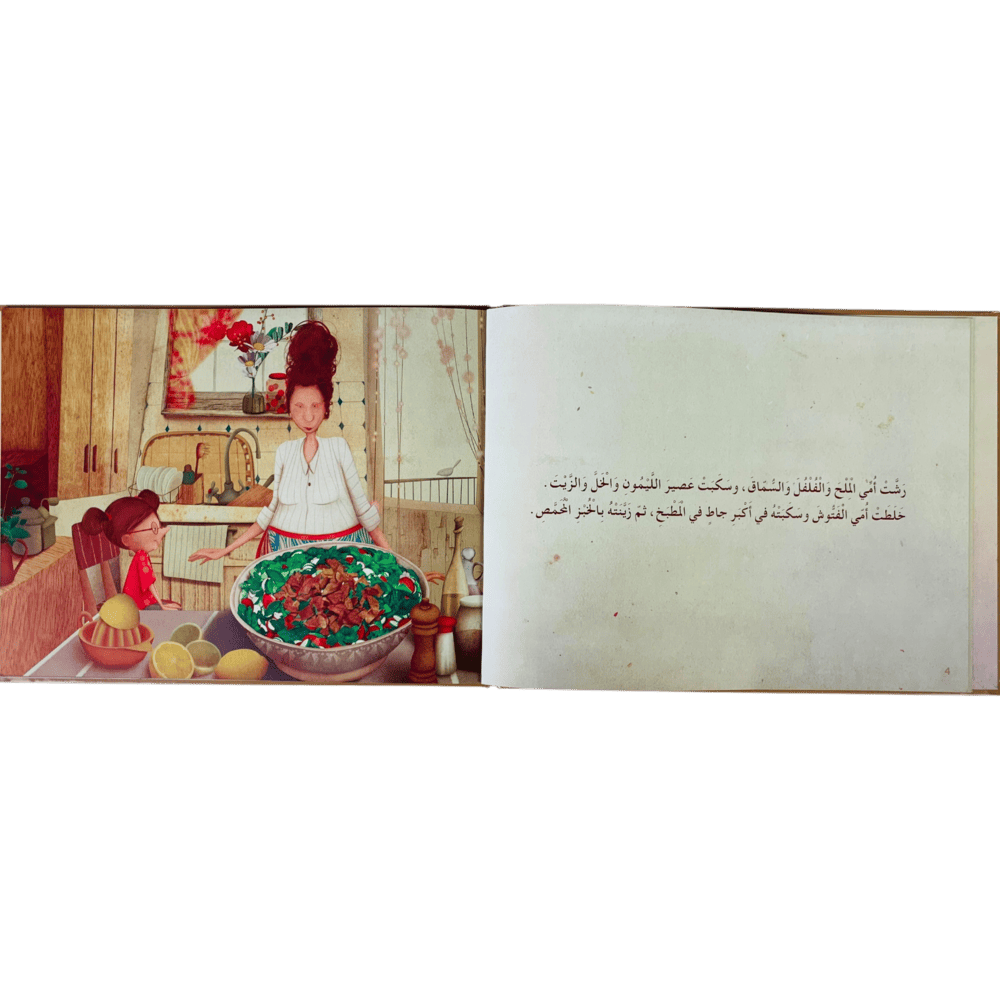 رَشَّتْ أُمِّي الْمِلْحَ وَالْفُلْفُلَ وَالسُّمَاقَ، وسَكَبَتْ عَصيرَ اللَّيْمُونِ وَالْخَلَّ وَالزَّيْتَ.
خَلَطَتْ أُمّي الْفَتُّوشَ وسَكَبَتْهُ في أَكْبَرِ جاطٍ في الْمَطْبَخِ، ثُمَّ زَيَّنَتْهُ بِالْخُبْزِ الْمُحَمَّصِ.
4